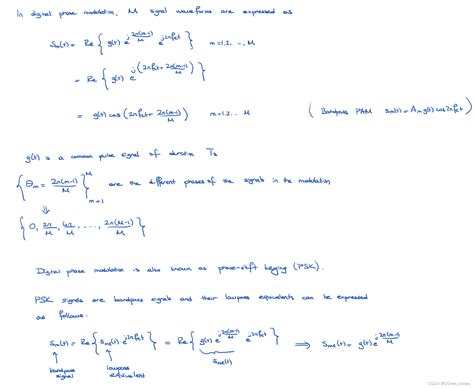 In digital phase modulation, M signal waveforms are expressed as
Sₘ(t) = Re { g(t) e^{j 2π(m-1)/M} e^{j2πf_c t} } m=1,2, .., M
= Re { g(t) e^{j(2πf_c t + 2π(m-1)/M)} }
= g(t) cos (2πf_c t + 2π(m-1)/M) m=1,2... M ( Bandpass PAM Sₘ(t) = Aₘ g(t) cos 2πf_c t )
g(t) is a common pulse signal of duration Ts
{ θₘ = 2π(m-1)/M }^M_{m=1} are the different phases of the signals in the modulation
⇓
{ 0, 2π/M, 4π/M, ...., 2π(M-1)/M }
Digital phase modulation is also known as phase-shift keying (PSK).
PSK signals are bandpass signals and their lowpass equivalents can be expressed
as follows.
Sₘ(t) = Re { Sₘₗ(t) e^{j2πf_c t} } = Re { g(t) e^{j 2π(m-1)/M} e^{j2πf_c t} } ⇒ Sₘₗ(t) = g(t) e^{j 2π(m-1)/M}
Sₘₗ(t)
bandpass signal
lowpass equivalent